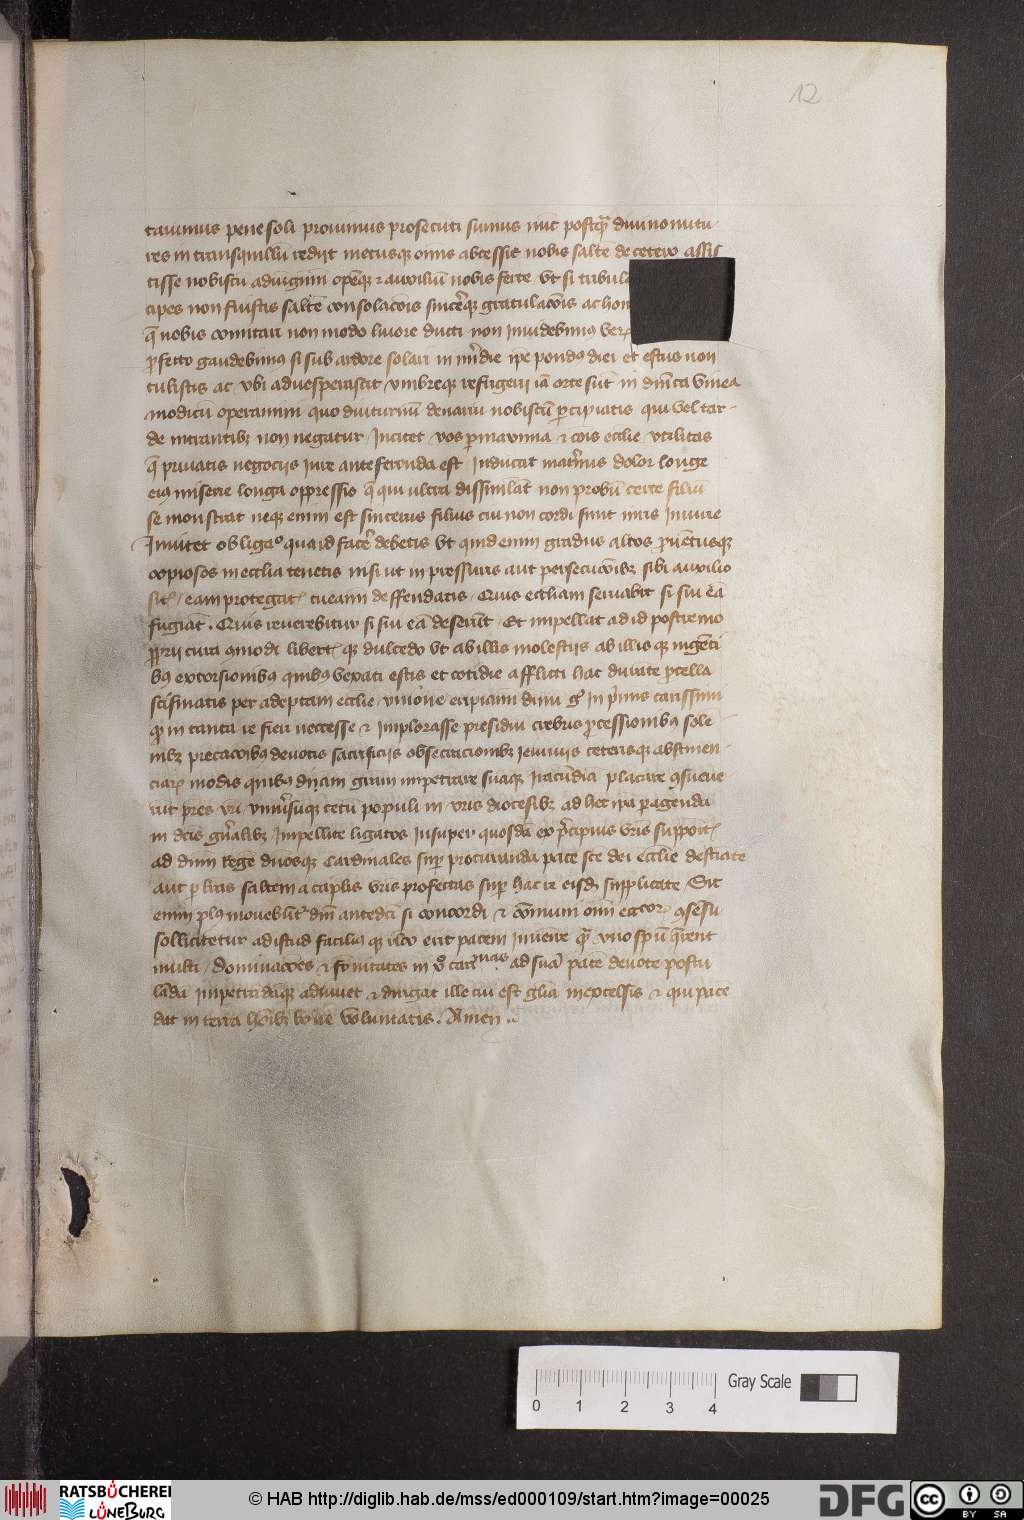 12
tauimus pene soli proximus prosecuti sumus nūc postq̄ȝ diuino nutu
res in tranquillū redijt metusq̨ omīs abcessit nobis saltē de cetero assis
tisse nobiscū ad uirginū opēq̨ ⁊ auxiliū nobis ferte vt si tribula
cipes non fuistis saltē consolacōis sincerēq̨ gratulacōis ac hon
q̄ nobis comitari non modo liuore ducti non inuidebimꝰ
ꝑfecto gaudebimꝰ si sub ardore solari in mīdie ipē pondꝰ diei et estus non
tulistis ac vbi aduesperascit vmbreq̨ refrigerij iā orte sūt in dn̄ica vinea
modicū operamini quo diuturnū denariū nobiscū ꝑcipiatis qui vel tar
de intrantibꝫ non negatur Incitet vos ꝑmaxima ⁊ cōis ecclīe vtilitas
q̄ priuatis negocijs iure anteferenda est Inducat mat̄nus dolor longe
eiꝰ miserie longa oppressio q̄ qui vltra dissimlat non probū certe filiū
se monstrat neq̨ enim est sincerus filius cui non cordi sunt mr̄is iniurie
Inuitet obligaᵒ qua id facēre debetis vt quid enim gradus altos ꝓuētusq̨
copiosos in ecclīa tenetis nisi ut in pressuris aut persecucōibꝫ sibi auxilio
sitꝭ eam protegatꝭ tueamī deffendatis Quis eccliam seruabit si sui eā
fugiāt . Quis reuerebitur si sui eā deserūt Et impellat ad id postremo
ꝓprij cura cōmodi libertꝭ q̨ dulcedo vt ab illis molestijs ab illis q̨ ingēti
bꝰ extorsionibꝰ quibꝰ vexati estis et cotidie afflicti hac durāte ꝓcella
scismatis per adeptam ecclīe vnionē eripiamī dium gͦ in ṗmis carissimi
qꝫ in tanta re fieri necesse ⁊ implorasse presidiū crebris ꝓcessionibꝰ sole
nibꝫ precacōibꝰ deuotis sacrificijs obsecracionibꝫ ieiunijs ceterisq̨ abstinen
ciarꝫ modis quibꝰ diuinam gratiam impetrare suāq̨ iracūdia placare ꝯsueue
rūt pres vri vniūsūq̨ cetū populi in vr̄is diocesibꝫ ad hec ipa ꝑagenda
in dc̄is gn̄alibꝫ Impellite ligatos insuper quosdā ex ṗcipuis vr̄is supposit
ad dn̄m Regē dn̄osq̨ Cardinales sup̄ procuranda pace sc̄e dei Ecclīe destīate
aut ꝑ lr̄as saltem a caplīs vr̄is profectas sup̄ hac re eisdꝫ supplicate Sic
enim plꝰ mouebūt dn̄m antedc̄i si concordi ⁊ cōmuni om̄i eccorꝫ ꝯsesu
sollicitetur ad istud faciliꝰ q̨ vlō erit pacem inuenire q̄ vno spū q̄rent
multi Dominacōes ⁊ fr̄nitates in vō car ad suā pacē deuote postu
lādā impetrādāq̨ adiuuet ⁊ dirigat ille cui est gl̄ia in excelsis ⁊ qui pacē
dat in terra hoībꝫ bone voluntatis . Amen .
Gray Scale
0 1 2 3 4
RATSBÜCHEREI
LÜNEBURG
© HAB http://diglib.hab.de/mss/ed000109/start.htm?image=00025
DFG
cc BY SA